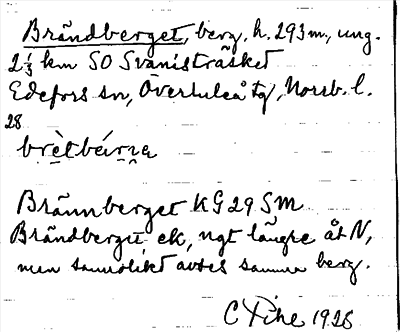 Brändberget, berg, h. 293 m, ung.
2⅓ km SO Svanisträsket
Edefors sn, Överluleå tg, Norrb. l.
28
Brännberget KG 29 SM
Brändberget, ek, ngt längre åt N,
men sannolikt avses samma berg.
C Pihe 1926